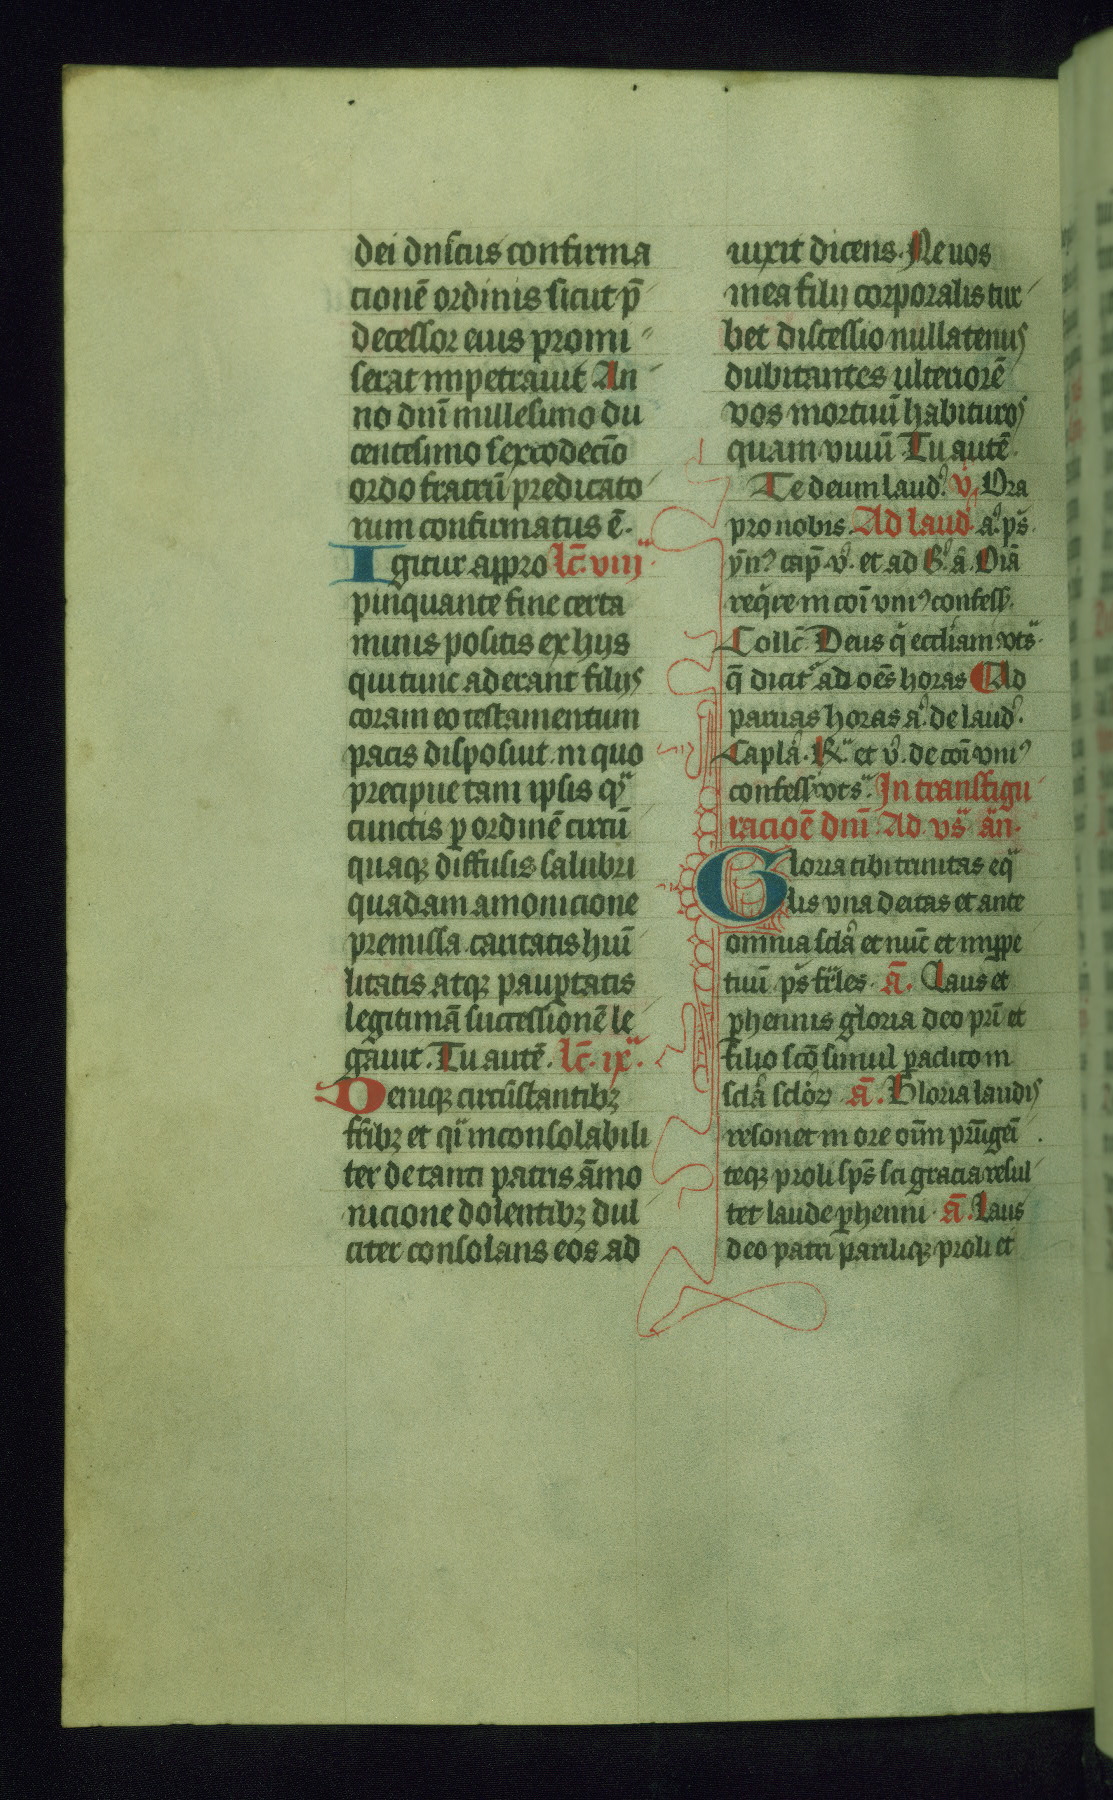 dei dn̄icus confirma
cionē ordinis sicut p̄
decessor eius promi
serat impetrauit An
no dn̄i millesimo du
centesimo sextodecīo
ordo fratrū predicato
rum confirmatus ē.
Igitur appro lc̄. viij
pinquante fine certa
minis positis ex hijs
qui tunc aderant filijs
coram eo testamentum
pacis disposuit. in quo
precipue tam ipsis qͣ
cunctis p̱ ordinē circū
quaqꝫ diffusis salubri
quadam amonicione
premissa. caritatis huī
litatis atqꝫ paup̱tatis
legitimā successionē le
gāuit. Tu autē. lc̄. ix.
Deniqꝫ circūstantibꝫ
fr̄ibꝫ et qͣ inconsolabili
ter de tanti patris āmo
nicione dolentibꝫ dul
citer consolans eos ad
iuxit dicens. Ne uos
mea filij corporalis tur
bet discessio nullatenus
dubitantes ulteriorē
vos mortuū habituros
quam viuū Tu autē
Te deum laudꝰ. v̉. Ora
pro nobis. Ad laud. aͣ. ps̄.
ym̄ꝰ cap̄. v̉. et ad B. ā. Oīa
req̇re in coī vniꝰ confess̄.
Collc̄ Deus q̇ eccl̄iam. vts̄.
q̄ dicit᷑ ad oēs horas Ad
paruas horas aͣ. de laudꝰ.
Capl̄a. R. et v̉. de coī vniꝰ
confess̄. vts̄. In transfigu
racioē dn̄i. Ad. vs̄ an̄.
Gloria tibi trinitas eqͣ
lis vna deitas et ante
omnia scl̄a et nūc et imp̱pe
tuū. ps̄ fr̄iles. ā. Laus et
p̱hennis gloria deo pr̄i et
filio sc̄o simul paclito in
scl̄a sclōꝝ ā. Gloria laudis
resonet in ore oīm pr̄i. geī
teqꝫ proli. sp̄s sc̄i gracia resul
tet laude p̱henni. ā. Laus
deo patri pariliqꝫ proli et